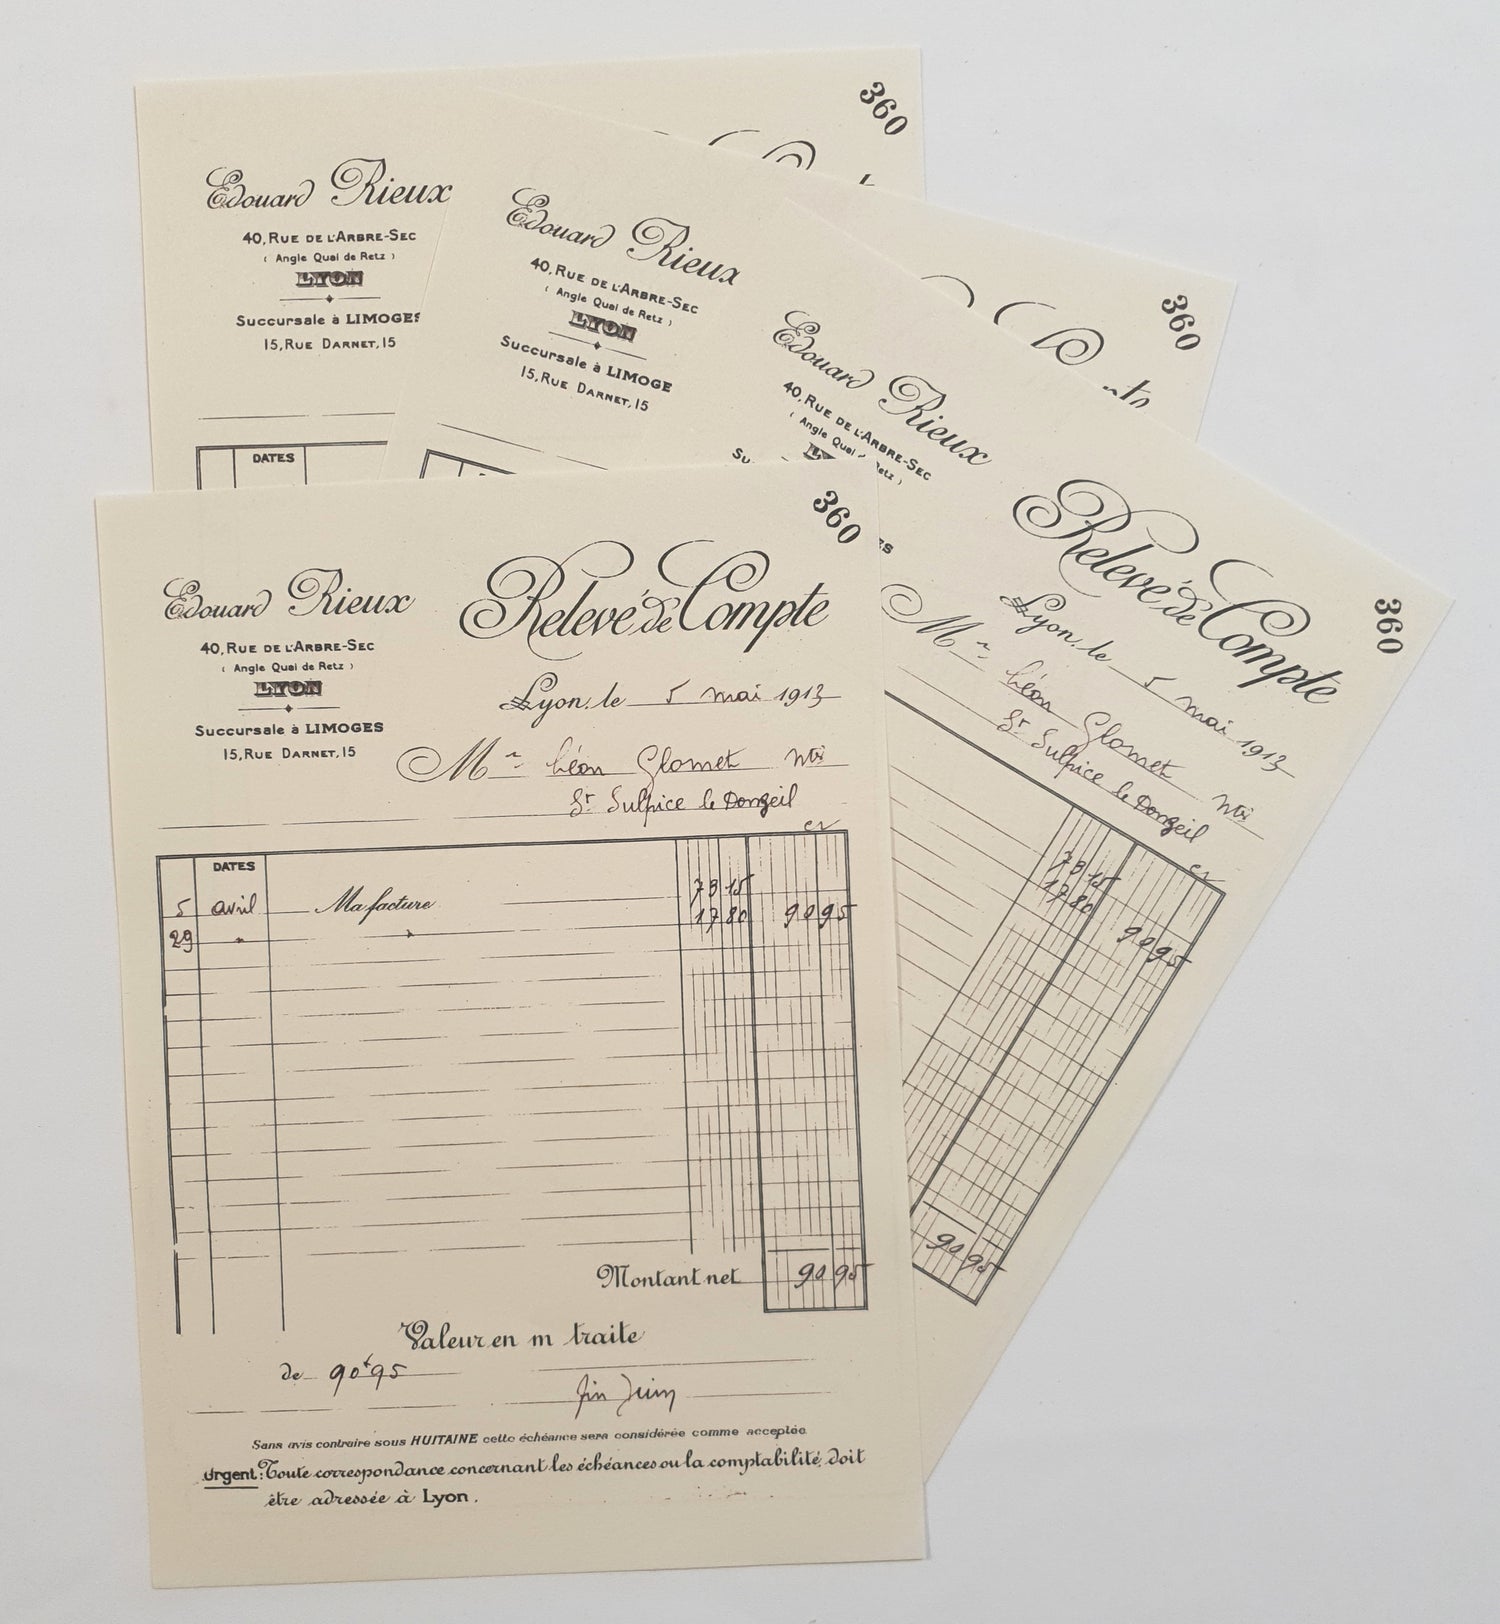 360
Edouard Rieux
40, RUE DE L'ARBRE-SEC
( Angle Quai de Retz )
LYON
Succursale à LIMOGES
15, RUE DARNET, 15
DATES
360
Edouard Rieux
40, RUE DE L'ARBRE-SEC
( Angle Quai de Retz )
LYON
Succursale à LIMOGE
15, RUE DARNET, 15
360
Edouard Rieux
40, RUE DE L'ARBRE-SEC
( Angle Quai
Retz )
LY
Su
ES
Relevé de Compte
Lyon, le 5 mai 1913
Mr Léon Glomet
St Sulpice le Donzeil
73 15
17 80
90 95
90 95
360
Edouard Rieux
Relevé de Compte
40, RUE DE L'ARBRE-SEC
( Angle Quai de Retz )
LYON
Lyon, le 5 mai 1913
Succursale à LIMOGES
15, RUE DARNET, 15
Mr Léon Glomet
St Sulpice le Donzeil
DATES
73 15
5 avril Ma facture 17 80 90 95
29 " "
Montant net 90 95
Valeur en m traite
de 90f95
fin Juin
Sans avis contraire sous HUITAINE cette échéance sera considérée comme acceptée
Urgent: Toute correspondance concernant les échéances ou la comptabilité, doit
être adressée à Lyon.